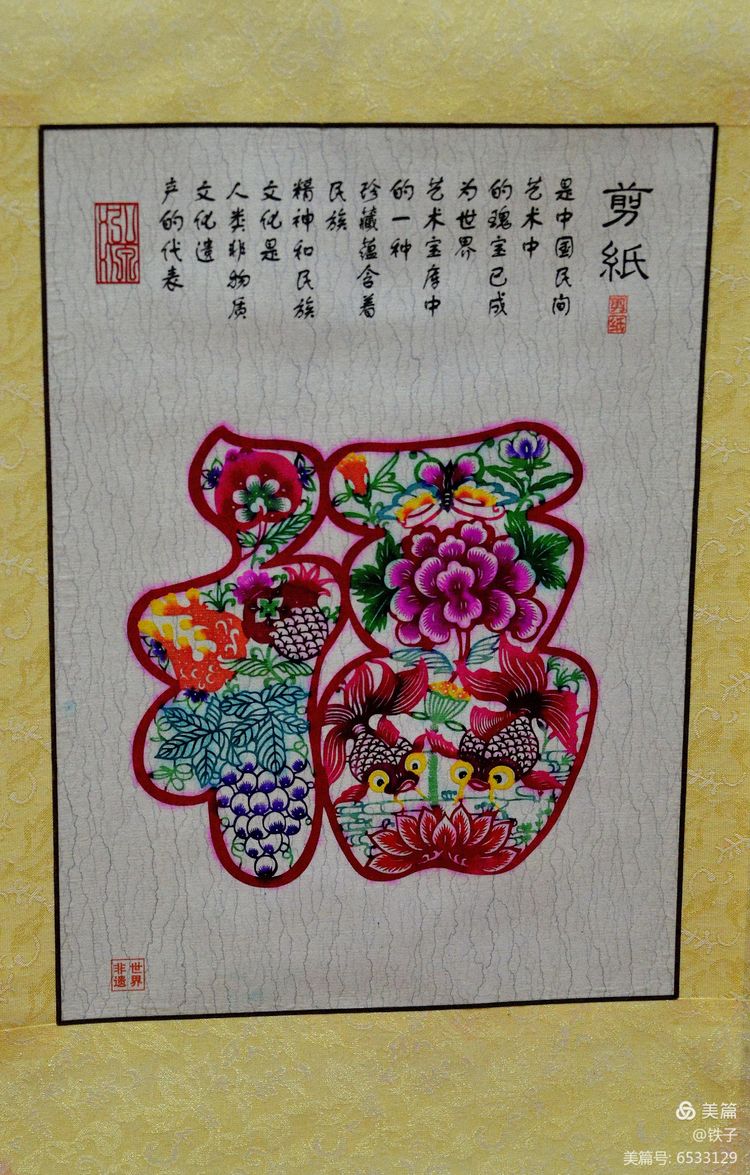 剪紙
剪纸
是中国民间
艺术中
的瑰宝已成
为世界
艺术宝库中
的一种
珍藏蕴含着
民族
精神和民族
文化是
人类非物质
文化遗
产的代表
福
世界
非遗
美篇
@铁子
美篇号: 6533129